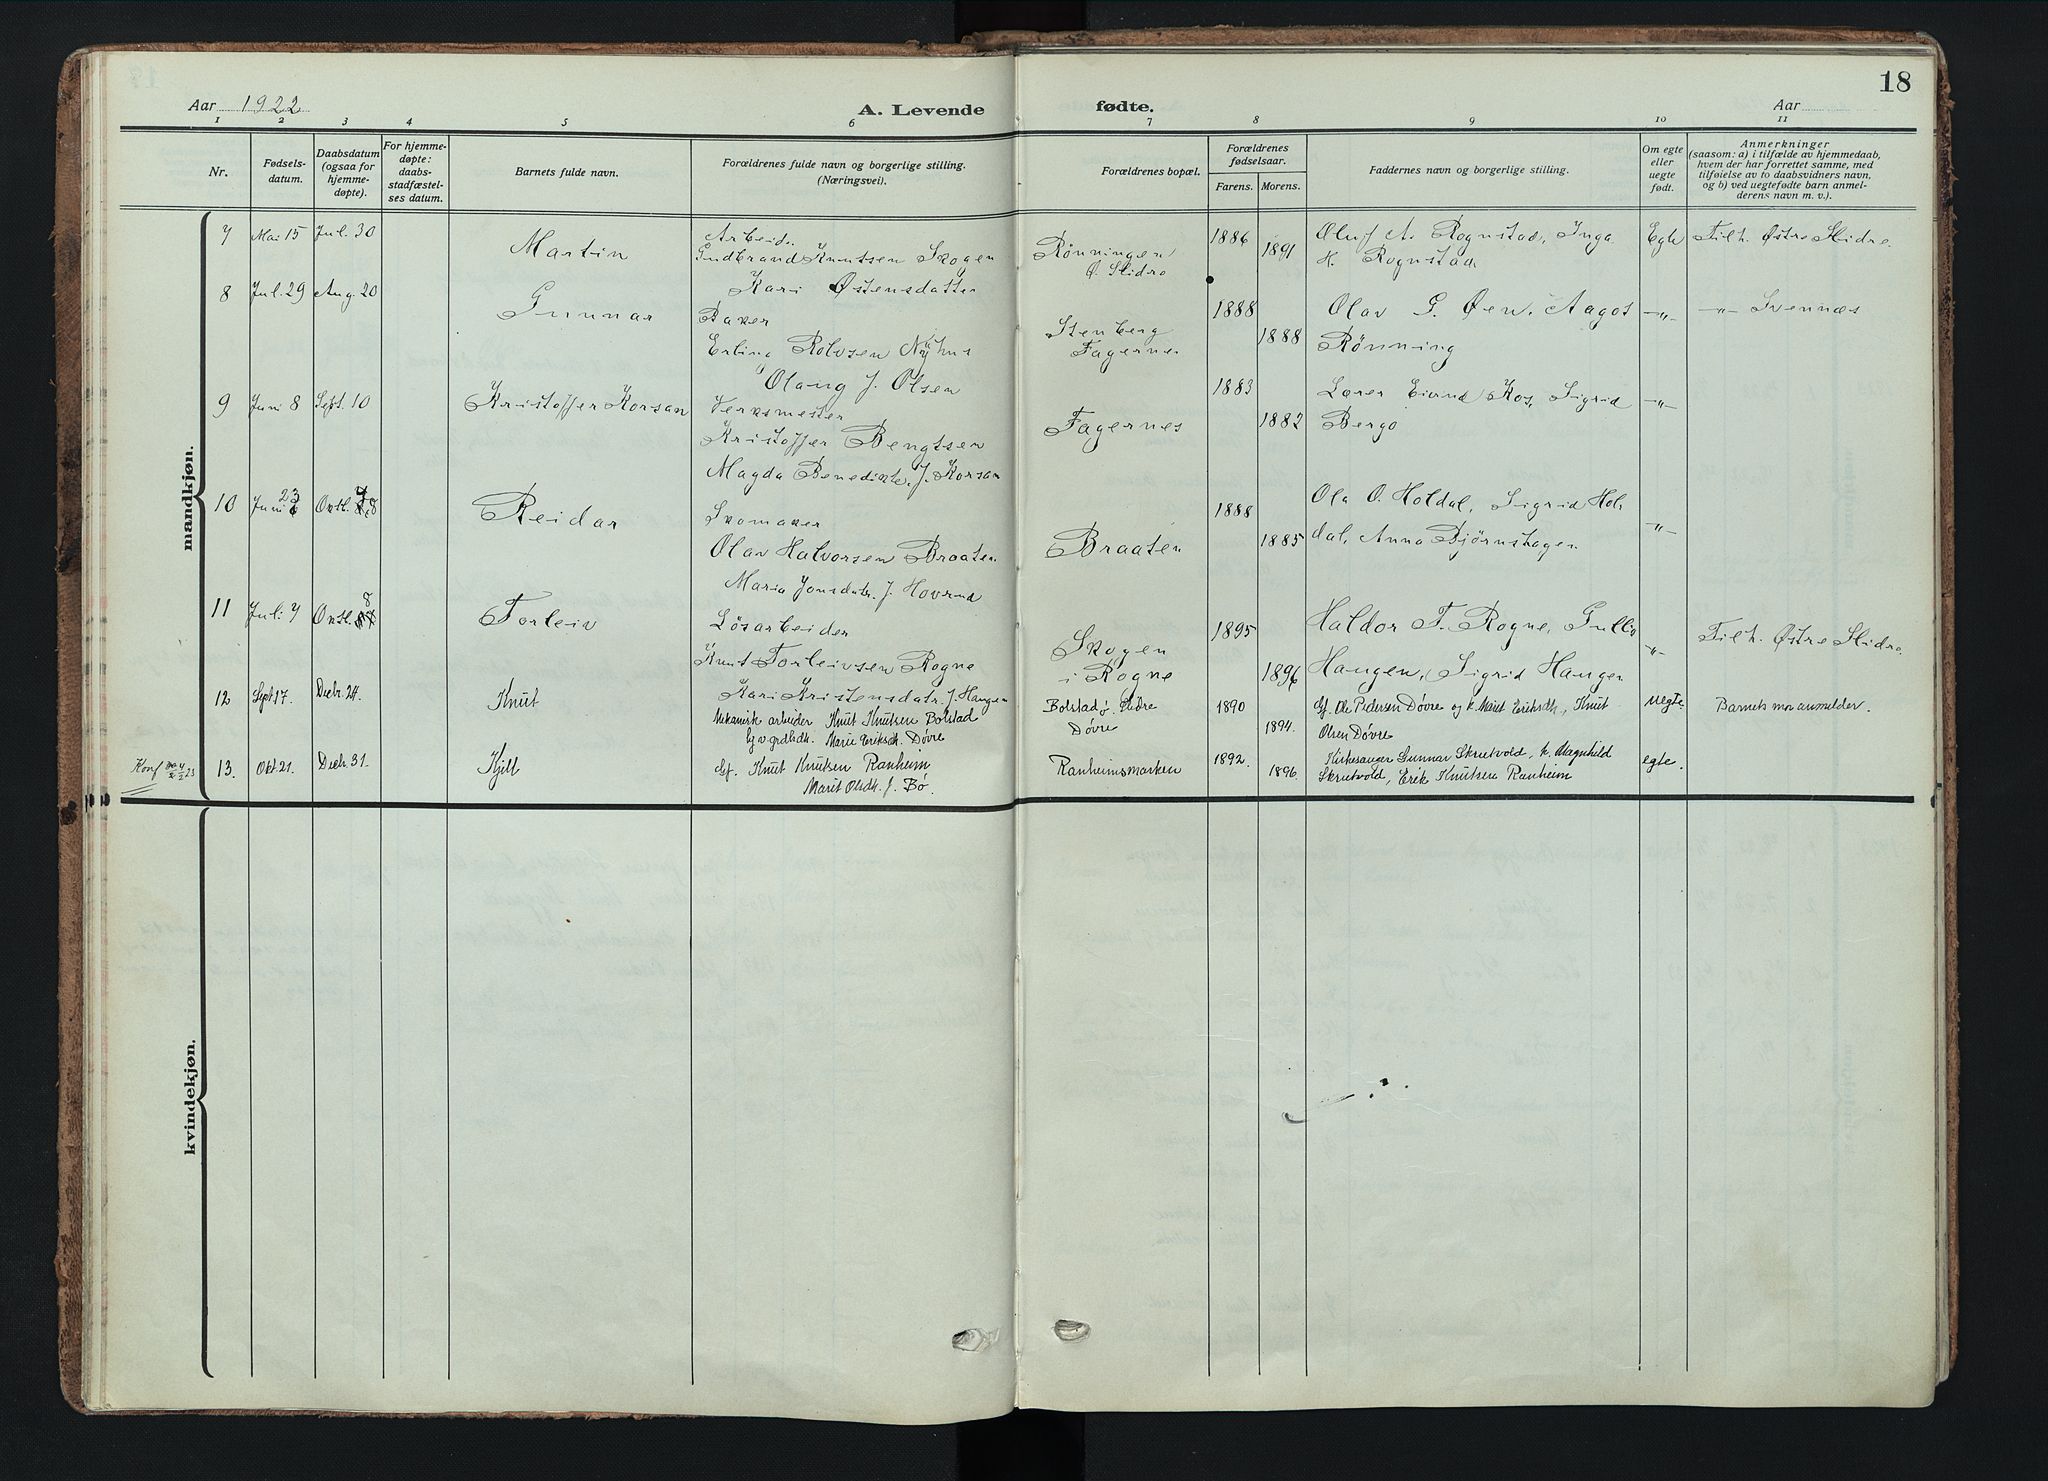 18
Aar 1922
A. Levende fødte.
Aar
1 2 3 4 5 6 7 8 9 10 11
Nr.
Fødsels-
datum.
Daabsdatum
(ogsaa for
hjemme-
døpte).
For hjemme-
døpte:
daabs-
stadfæstel-
ses datum.
Barnets fulde navn.
Forældrenes fulde navn og borgerlige stilling.
(Næringsvei).
Forældrenes bopæl.
Forældrenes
fødselsaar.
Farens. Morens.
Faddernes navn og borgerlige stilling.
Om egte
eller
uegte
født.
Anmerkninger
(saasom: a) i tilfælde av hjemmedaab,
hvem der har forrettet samme, med
tilføielse av to daabsvidners navn,
og b) ved uegtefødte barn anmel-
derens navn m. v.).
mandkjøn.
7 Mai 15 Jul. 30 Martin
Arbeid.
Gudbrand Knutsen Skogen
Kari Østensdatter
Rønningen
Ø. Slidre
1886 1891
Oluf A. Rognstad, Inga
H. Rognstad
Egte Tilh. Østre Slidre
8 Jul. 29 Aug. 20 Gunnar
Baker
Erling Rolvsen Nyhus
Olaug f. Olsen
Stenberg
Fagernes
1888 1888
Olav G. Øen, Aagot
Rønning
-"- -"- Svennæs
9 Juni 8 Sept. 10 Kristoffer Korsan
Verksmester
Kristoffer Bengtsen
Magda Benedikte f. Korsan
Fagernes
1883 1882
Lærer Eivind Kos, Sigrid
Bergo
-"-
10 Juni 23 Oktb. 8 Reidar
Skomaker
Olav Halvorsen Braaten
Maria Jonsdatr. f. Hovrud
Braaten
1888 1885
Ola O. Holdal, Sigrid Hol-
dal, Anna Bjørnshagen
-"-
11 Juli 7 Oktb. 8 Torleiv
Løsarbeider
Knut Torleivsen Rogne
Kari Kristensdatr. f. Haugen
Skogen
i Rogne
1895 1896
Haldor T. Rogne, Gullio
Haugen, Sigrid Haugen
-"- Tilh. Østre Slidre
12 Sept 17. Decbr. 24. Knut
Mekanisk arbeider Knut Knutsen Bolstad
Ug v grdbdtr. Marie Eriksdtr. Døvre
Bolstad ø. Slidre
Døvre
1890 1894.
Gf. Ole Pedersen Døvre og k. Marit Eriksdtr, Knut
Olsen Døvre
Uegte. Barnets mor anmelder.
13. Okt. 21. Decbr 31. Kjell
Gf. Knut Knutsen Ranheim
Marit Olsdtr. f. Bø.
Ranheimsmarken
1892. 1896.
Kirkesanger Gunnar Skrutvold, k. Magnhild
Skrutvold, Erik Knutsen Ranheim
egte.
kvindekjøn.